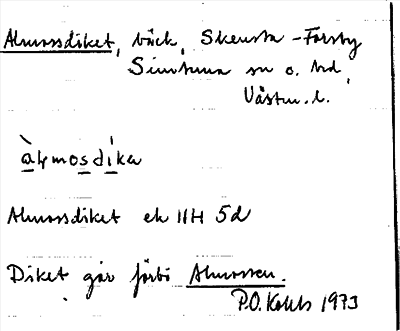 Almossdiket, bäck, Skensta-Forsby
Simtuna sn o. hd,
Västm. l.
àḷmosdìka
Almossdiket ek 11H 5d
Diket går förbi Almossen.
P.O. 1973